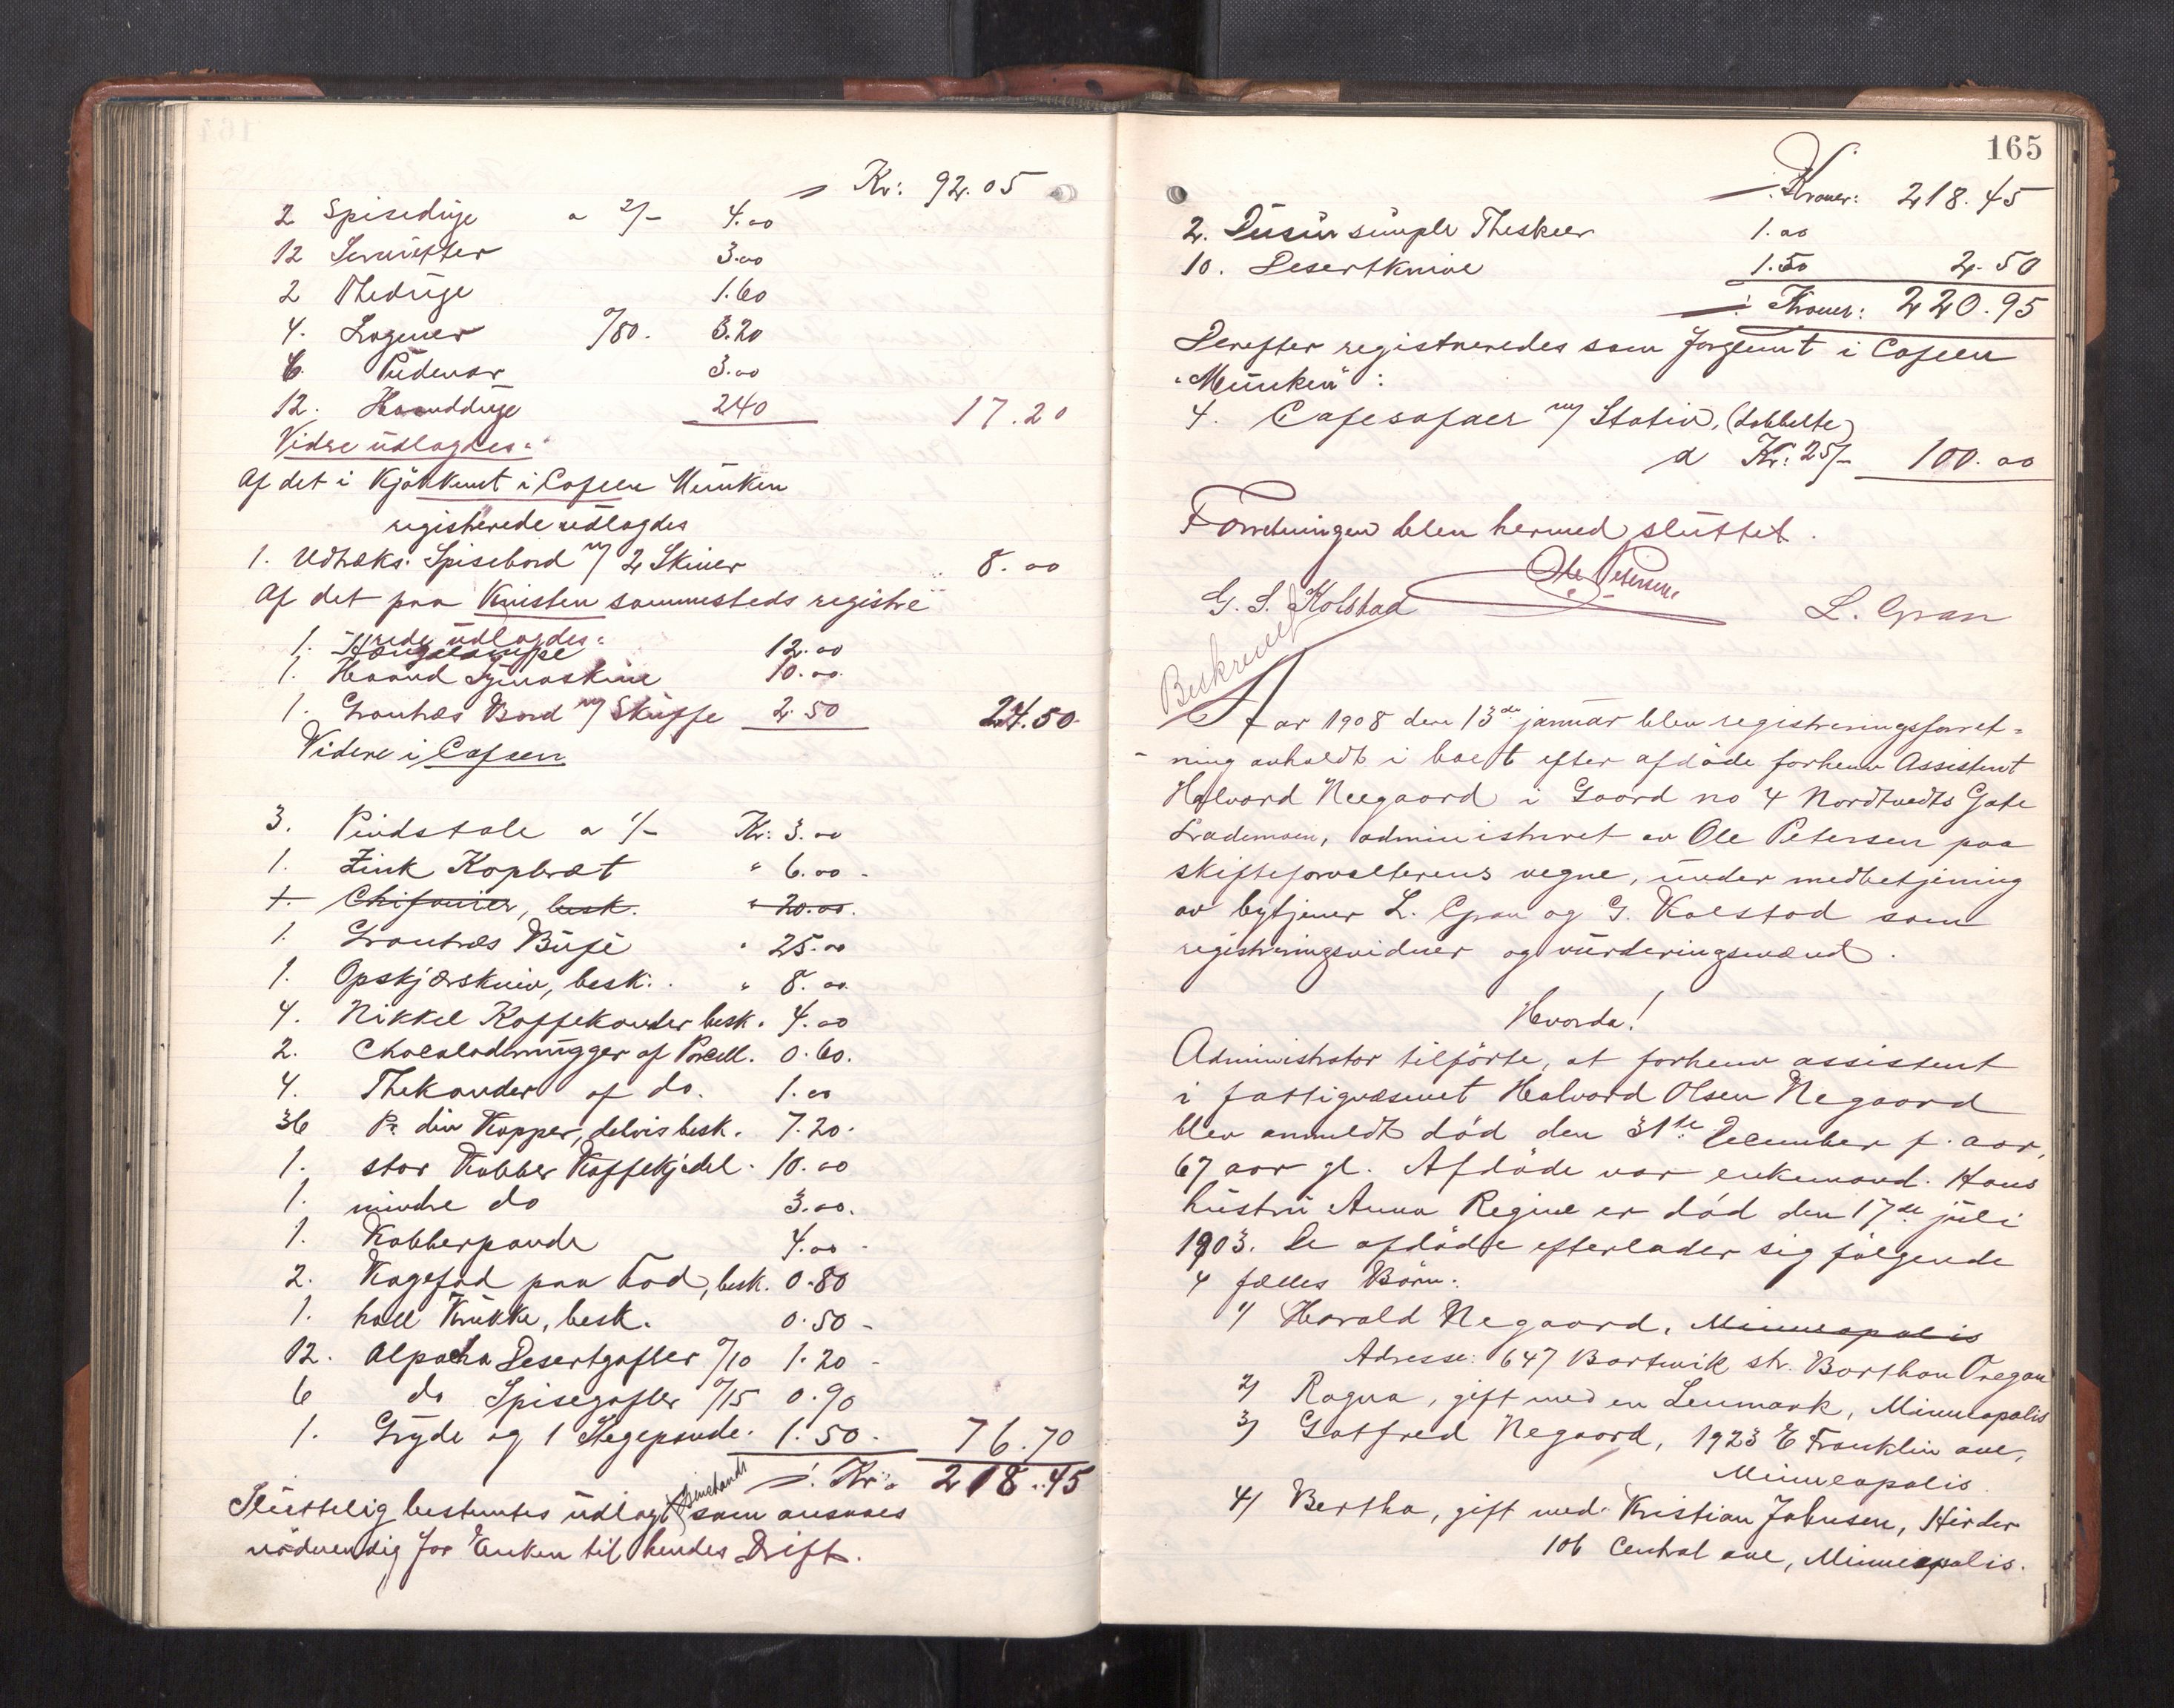 Kr: 92.05
2 Spiseduge a 2/- 4.00
12 Servietter 3.00
2 Theduge 1.60
4. Lagener a/80. 3.20
6 Pudevar 3.00
12. Haandduge 240 17.20
Videre udlagdes:
Af det i Kjökkenet i Cafeen Munken
registrerede udlagdes
1. Udtræks. Spisebord m/ 2 Skiver 8.00
Af det paa Kvisten sammesteds registre
rede udlagdes:
1. Hængelampe 12.00
1. Haand Symaskine 10.00
1. Grantræs Bord m/ Skuffe 2.50 24.50
Videre i Cafeen
3. Pindstole a 1/- Kr: 3.00
1. Zink Kopbræt " 6.00
1. Chifonier, besk. " 20.00.
1. Grantræs Büfe " 25.00
1. Opskjærskniv, besk. " 8.00
4. Nikkel Kaffekander besk. 4.00
2. Chocolademugger af Porcell. 0.60.
4. Thekander af do. 1.00
36 Pr. div Kopper, delvis besk. 7.20.
1. stor Kobber Kaffekjedel. 10.00
1. mindre do 3.00.
1. Kobberpande 4.00
2. Kagefad paa Fod, besk. 0.80
1. hvid Krukke, besk. 0.50
12. Alpacha Desertgafler a/10 1.20
6 do Spisegafler a/15 0.90
1. Gryde og 1 Stegepande. 1.50. 76.70
Kr. 218.45
Sluttelig bestemtes udlagt som ansaaes
nödvendig for Enken til hendes Drift.
165
Kroner: 218.45
2. Dusin simple Theskeer 1.00
10. Desertknive 1.50 2.50
Kroner: 220.95
Derefter registreredes som forglemt i Cafeen
"Munken":
4. Cafesofaer m/ Stativ, (dobbelte)
a Kr: 25/- 100.00
Forretningen blev hermed sluttet.
G. S. Kolstad Ole Petersen L. Gran
Beskrevet
Aar 1908 den 13de januar blev registreringsforret=
ning avholdt i boet efter afdöde forhenv Assistent
Halvard Neegaard i Gaard no 4 Nordtvedts Gate
Lademoen, administreret av Ole Petersen paa
skifteforvalterens vegne, under medbetjening
av bytjener L. Gran og G. Kolstad som
registreringsvidner og vurderingsmænd.
Hvorda!
Administrator tilförte, at forhenv assistent
i fattigvæsenet Halvard Olsen Negaard
blev anmeldt död den 31te December f. aar,
67 aar gl. Afdöde var enkemand. Hans
hustru Anna Regine er död den 17de juli
1903. De afdöde efterlader sig fölgende
4 fælles Börn:
1) Harald Negaard, Minneapolis
Adresse: 647 Bortwik str. Borthon Oregon
2) Ragna, gift med en Lenmark, Minneapolis
3) Gotfred Negaard, 1923 E Franklin ave,
Minneapolis
4) Bertha, gift med Kristian Johnsen, Hirder
106 Central ave, Minneapolis.